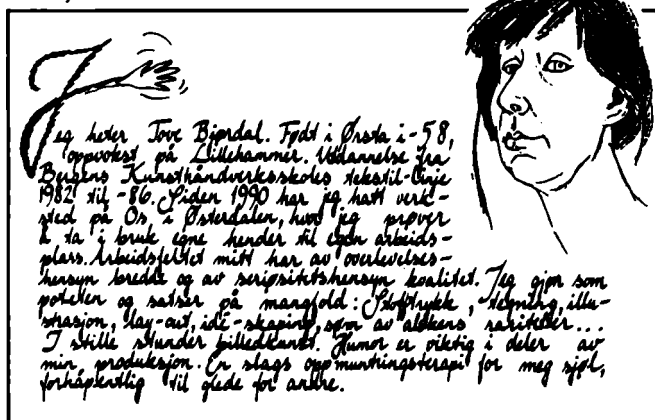 Jeg heter Tove Bjørdal. Født i Ørsta i -58,
oppvokst på Lillehammer. Utdannelse fra
Bergens Kunsthåndverksskoles tekstil-linje
1982 til -86. Siden 1990 har jeg hatt verk-
sted på Os i Østerdalen, hvor jeg prøver
å ta i bruk egne hender til egen arbeids-
plass. Arbeidsfeltet mitt har av overlevelses-
hensyn bredde og av seriøsitetshensyn kvalitet. Jeg gjør som
poteten og satser på mangfold: Stofftrykk, tegning, illu-
strasjon, lay-out, idé-skaping, søm av alskens rariteter...
I stille stunder billedkunst. Humor er viktig i deler av
min produksjon. En slags oppmuntringsterapi for meg sjøl,
forhåpentlig til glede for andre.